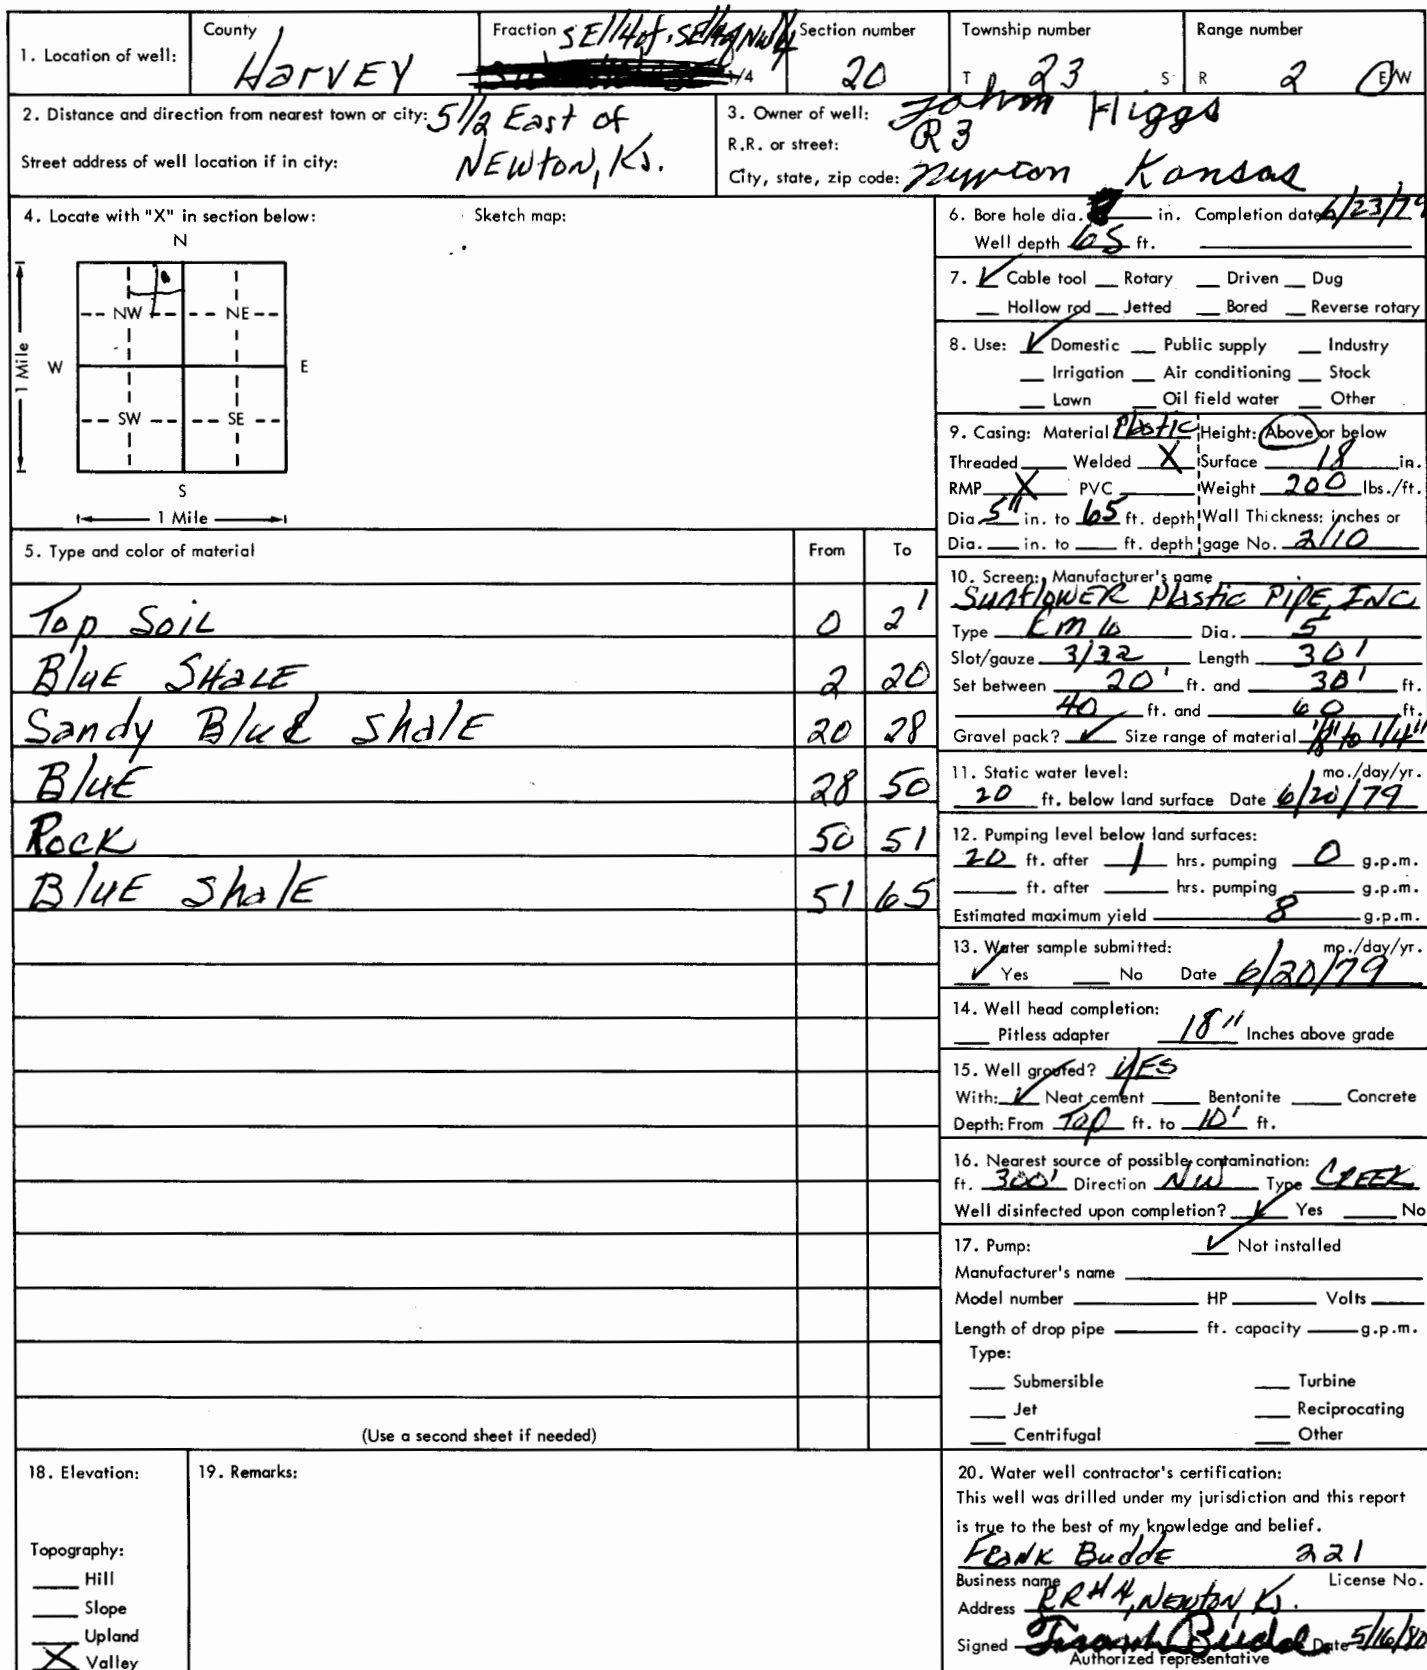 1. Location of well:
County
Harvey
Fraction SE1/4 of SE1/4 of NW1/4
1/4
Section number
20
Township number
T 23 S
Range number
R 2 E/W
2. Distance and direction from nearest town or city: 5 1/2 East of
Street address of well location if in city: NEWTON, Ks.
3. Owner of well: John Higgs
R.R. or street: R3
City, state, zip code: Newton Kansas
4. Locate with "X" in section below:
Sketch map:
N
NW NE
W E
1 Mile
SW SE
S
1 Mile
5. Type and color of material From To
Top Soil 0 2'
BluE SHALE 2 20
Sandy Blue shalE 20 28
BluE 28 50
Rock 50 51
BluE shalE 51 65
(Use a second sheet if needed)
6. Bore hole dia. in. Completion date 6/23/79
Well depth 65 ft.
7. ✓ Cable tool Rotary Driven Dug
Hollow rod Jetted Bored Reverse rotary
8. Use: ✓ Domestic Public supply Industry
Irrigation Air conditioning Stock
Lawn Oil field water Other
9. Casing: Material Plastic Height: Above or below
Threaded Welded X Surface 18 in.
RMP X PVC Weight 200 lbs./ft.
Dia. 5" in. to 65 ft. depth Wall Thickness: inches or
Dia. in. to ft. depth gage No. 2/10
10. Screen: Manufacturer's name
SunflowER Plastic PiPE, INC
Type Dia. 5
Slot/gauze 3/32 Length 30'
Set between 20' ft. and 30' ft.
40 ft. and 60 ft.
Gravel pack? ✓ Size range of material 1/8" to 1/4"
11. Static water level: mo./day/yr.
20 ft. below land surface Date 6/20/79
12. Pumping level below land surfaces:
20 ft. after 1 hrs. pumping 0 g.p.m.
ft. after hrs. pumping g.p.m.
Estimated maximum yield 8 g.p.m.
13. Water sample submitted: mo./day/yr.
✓ Yes No Date 6/20/79
14. Well head completion:
Pitless adapter 18" Inches above grade
15. Well grouted? YES
With: ✓ Neat cement Bentonite Concrete
Depth: From Top ft. to 10' ft.
16. Nearest source of possible contamination:
ft. 300' Direction NW Type CREEK
Well disinfected upon completion? ✓ Yes No
17. Pump: ✓ Not installed
Manufacturer's name
Model number HP Volts
Length of drop pipe ft. capacity g.p.m.
Type:
Submersible Turbine
Jet Reciprocating
Centrifugal Other
18. Elevation:
Topography:
Hill
Slope
Upland
X Valley
19. Remarks:
20. Water well contractor's certification:
This well was drilled under my jurisdiction and this report
is true to the best of my knowledge and belief.
FRANK BuddE 221
Business name License No.
Address RR#4, NEWTON, Ks.
Signed Frank Budde Date 5/16/80
Authorized representative